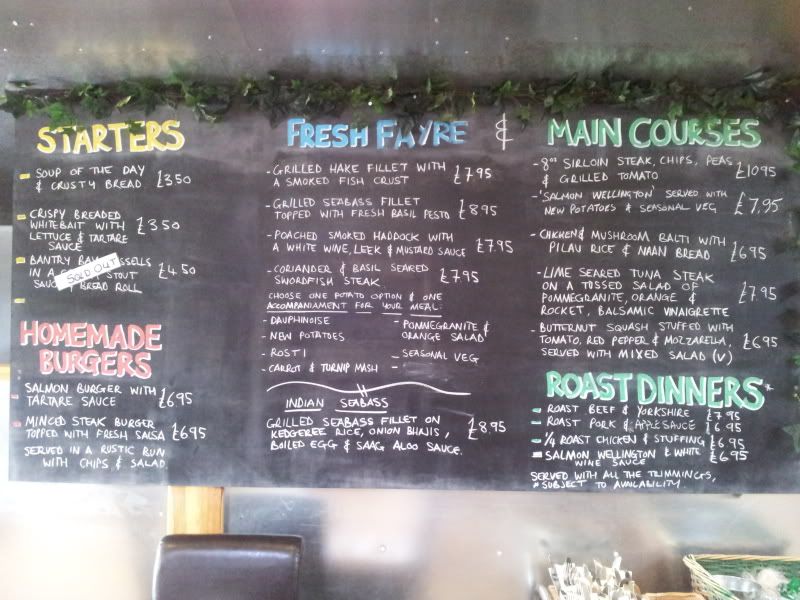 STARTERS
SOUP OF THE DAY
& CRUSTY BREAD £3.50
CRISPY BREADED
WHITEBAIT WITH £3.50
LETTUCE & TARTARE
SAUCE
BANTRY BAY
IN A STOUT £4.50
SOLD OUT
& BREAD ROLL
HOMEMADE
BURGERS
SALMON BURGER WITH
TARTARE SAUCE £6.95
MINCED STEAK BURGER
TOPPED WITH FRESH SALSA £6.95
SERVED IN A RUSTIC BUN
WITH CHIPS & SALAD
FRESH FAYRE &
- GRILLED HAKE FILLET WITH
A SMOKED FISH CRUST £7.95
- GRILLED SEABASS FILLET
TOPPED WITH FRESH BASIL PESTO £8.95
- POACHED SMOKED HADDOCK WITH
A WHITE WINE, LEEK & MUSTARD SAUCE £7.95
- CORIANDER & BASIL SEARED
SWORDFISH STEAK £7.95
CHOOSE ONE POTATO OPTION & ONE
ACCOMPANIAMENT FOR YOUR MEAL:
- DAUPHINOISE
- NEW POTATOES
- ROSTI
- CARROT & TURNIP MASH
- POMMEGRANITE &
ORANGE SALAD
- SEASONAL VEG
-
INDIAN SEABASS
GRILLED SEABASS FILLET ON
KEDGEREE RICE, ONION BHAJIS, £8.95
BOILED EGG & SAAG ALOO SAUCE.
MAIN COURSES
- 8oz SIRLOIN STEAK, CHIPS, PEAS
& GRILLED TOMATO £10.95
- 'SALMON WELLINGTON' SERVED WITH
NEW POTATOES & SEASONAL VEG £7.95
- CHICKEN & MUSHROOM BALTI WITH
PILAU RICE & NAAN BREAD £6.95
- LIME SEARED TUNA STEAK
ON A TOSSED SALAD OF
POMMEGRANITE, ORANGE & £7.95
ROCKET, BALSAMIC VINAIGRETTE
- BUTTERNUT SQUASH STUFFED WITH
TOMATO, RED PEPPER & MOZZARELLA, £6.95
SERVED WITH MIXED SALAD (V)
ROAST DINNERS*
- ROAST BEEF & YORKSHIRE £7.95
- ROAST PORK & APPLE SAUCE £6.95
- 1/4 ROAST CHICKEN & STUFFING £6.95
- SALMON WELLINGTON & WHITE £6.95
WINE SAUCE
SERVED WITH ALL THE TRIMMINGS,
* SUBJECT TO AVAILABILITY